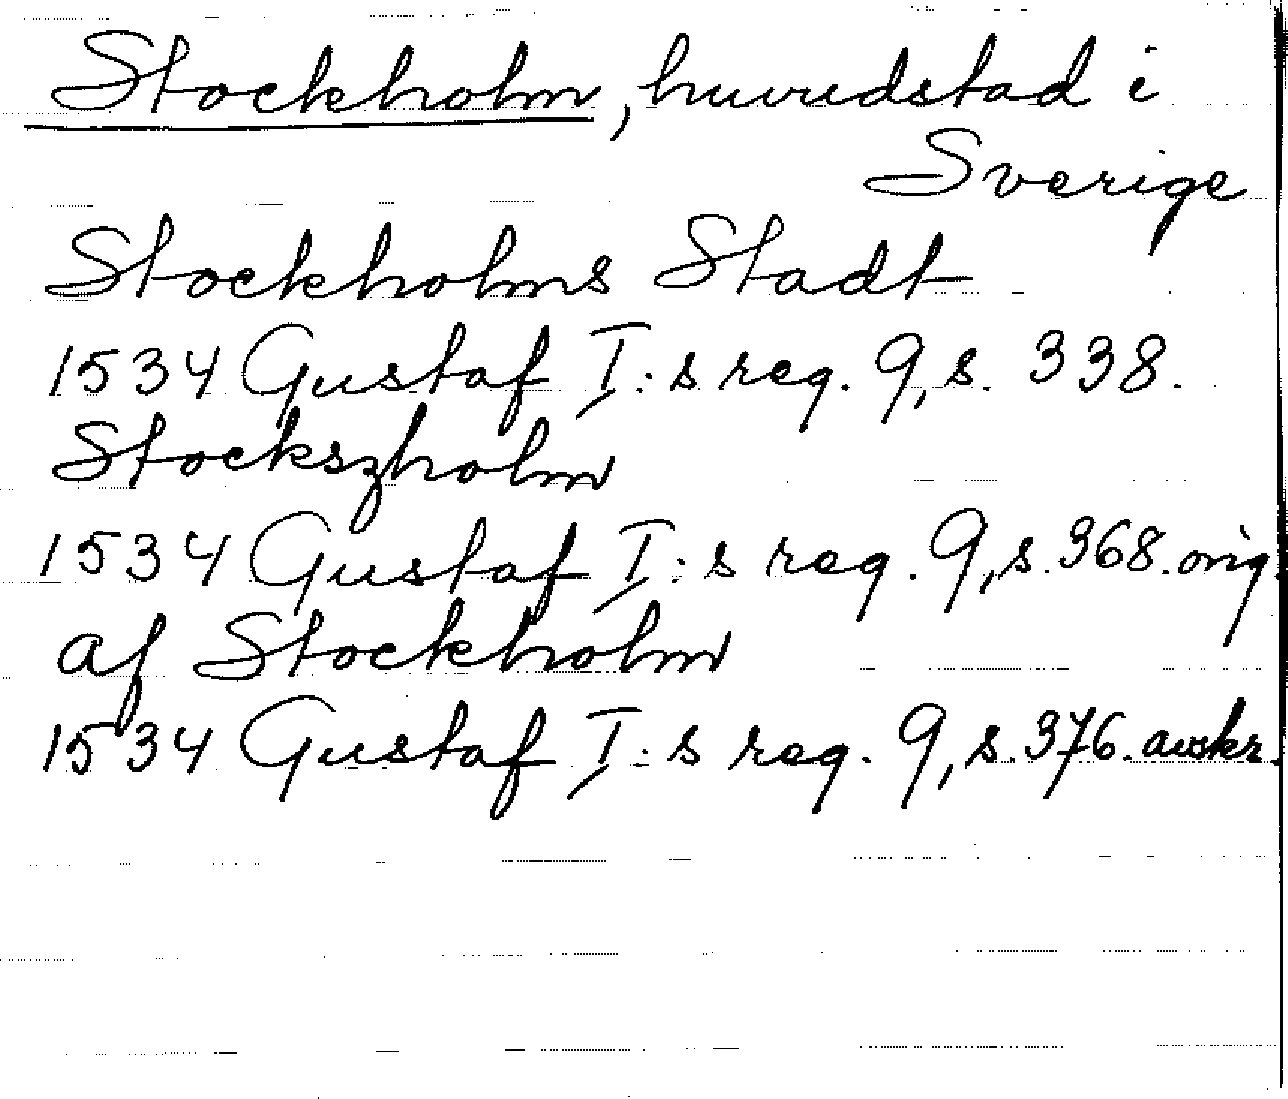 Stockholm, huvudstad i
Sverige
Stockholms Stadt
1534 Gustaf I:s reg. 9, s. 338.
Stockszholm
1534 Gustaf I:s reg. 9, s. 368. orig.
af Stockholm
1534 Gustaf I:s reg. 9, s. 376. avskr.